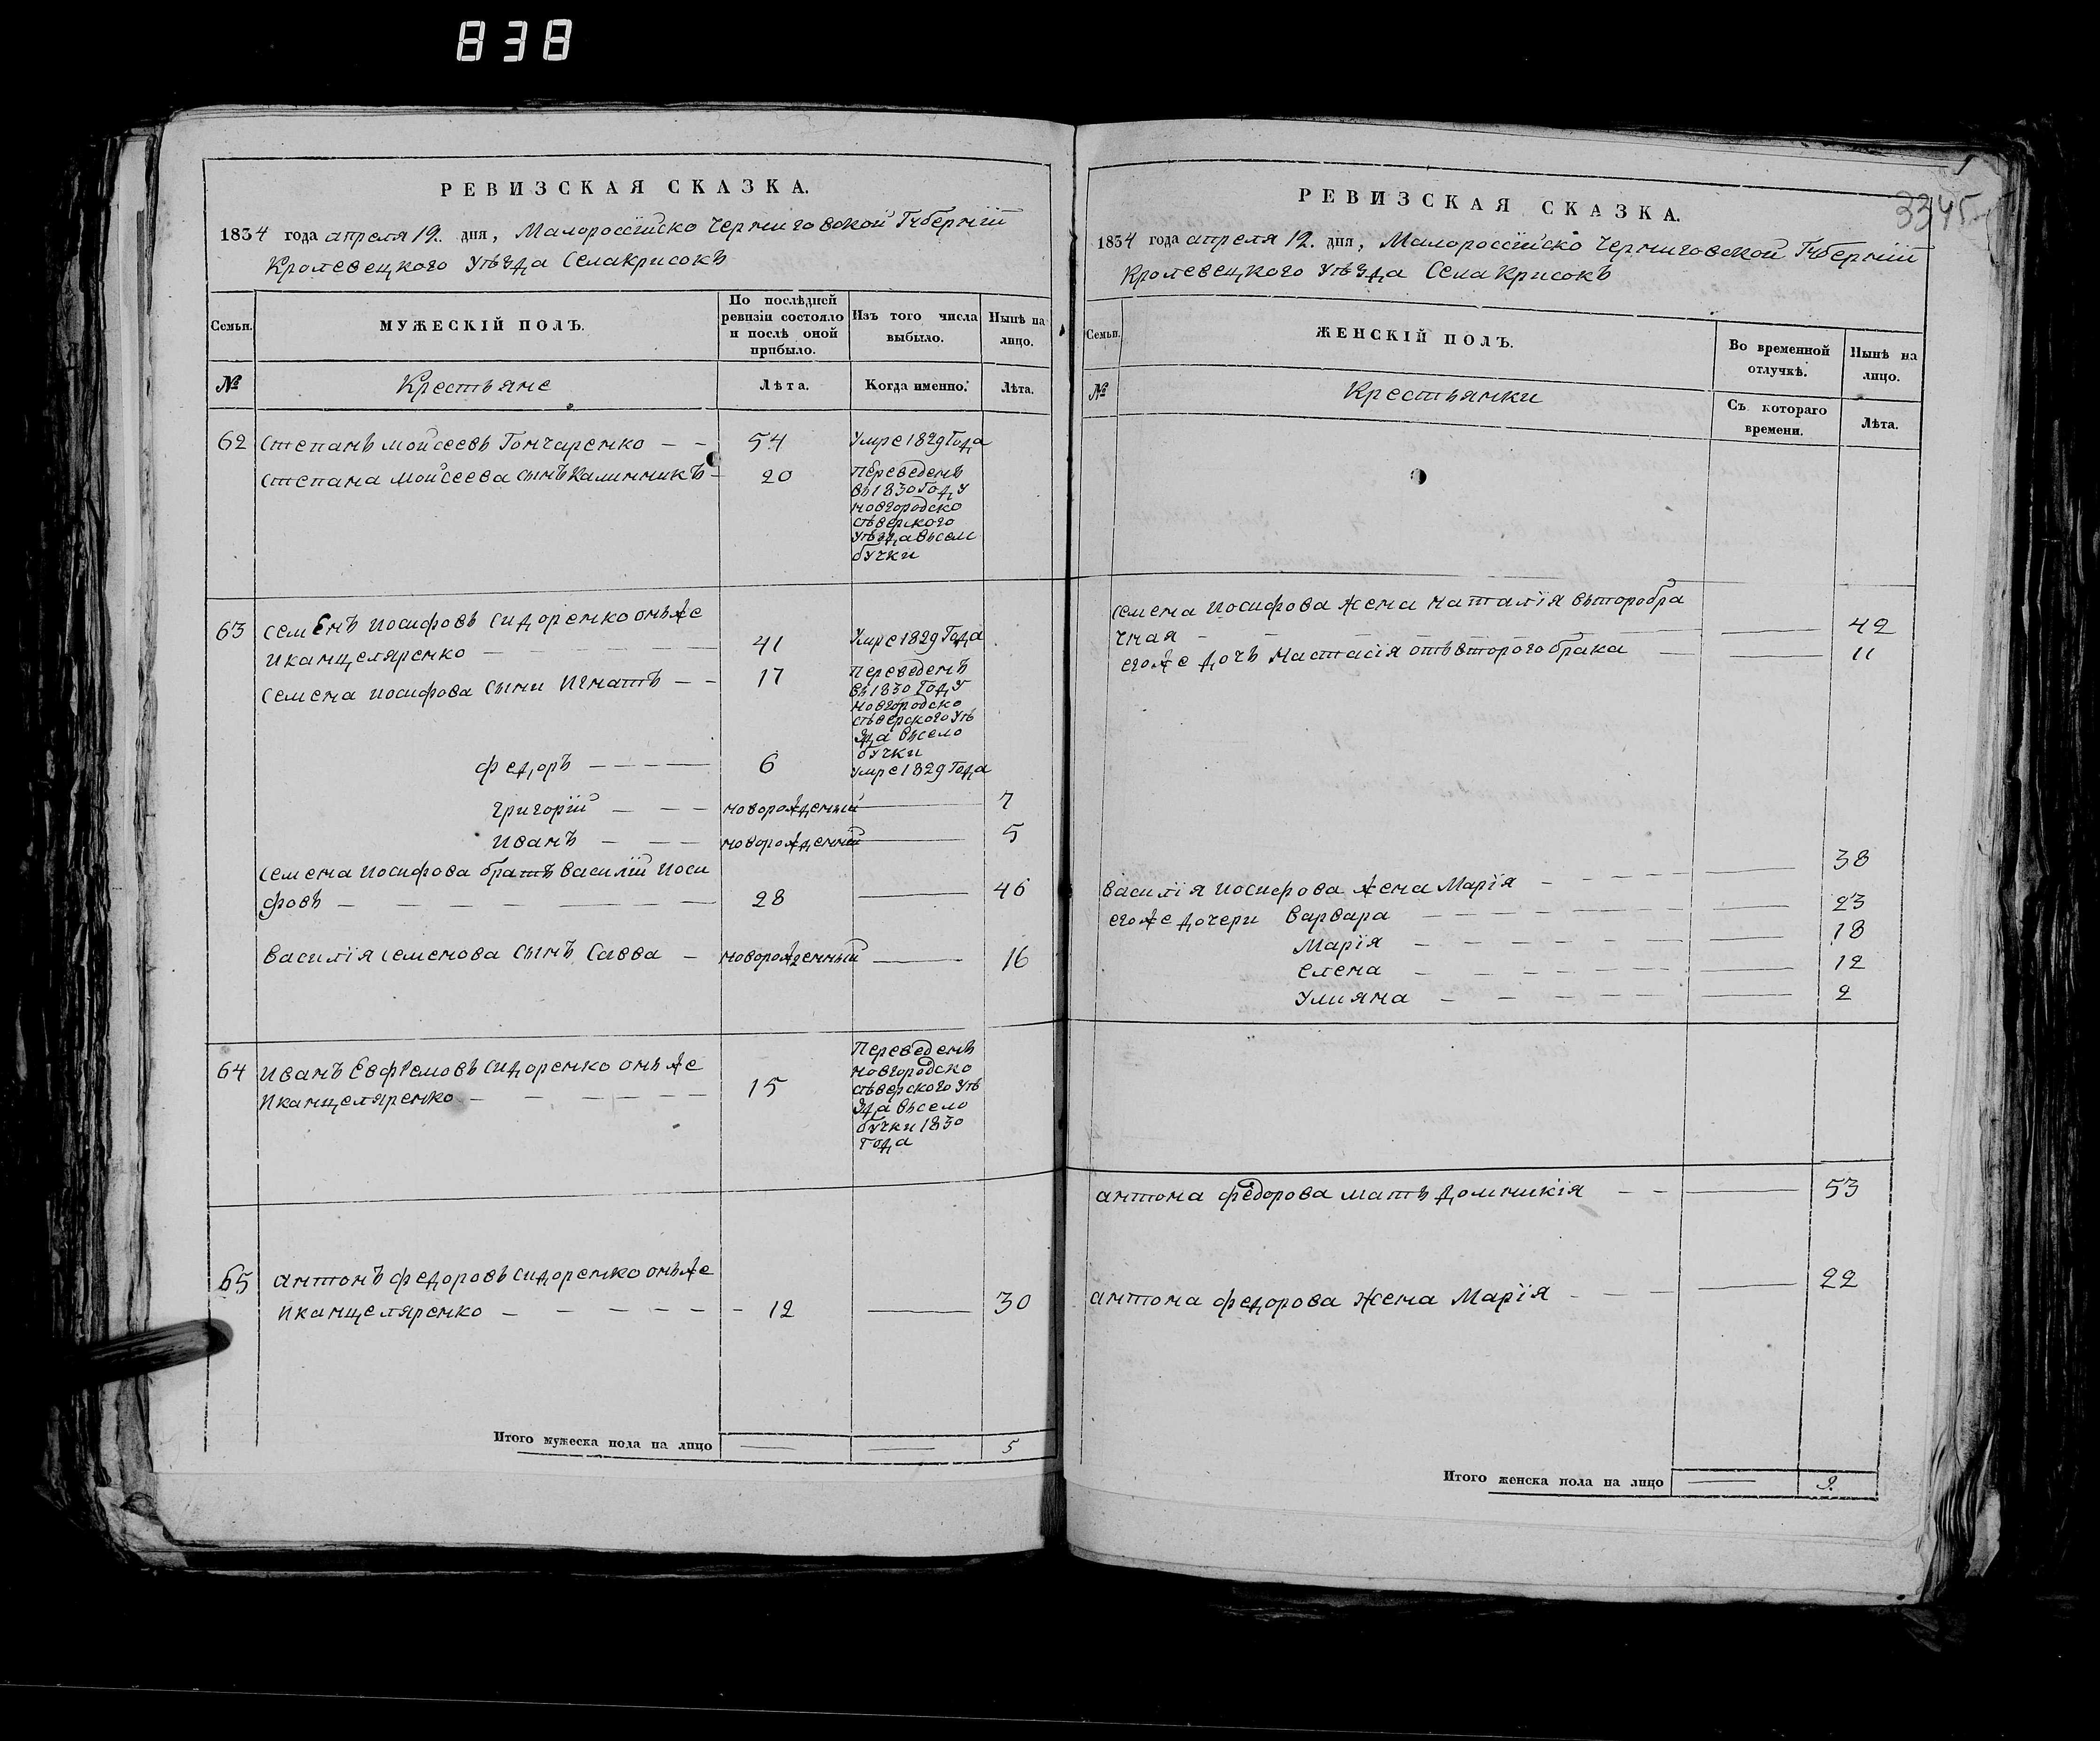 838
РЕВИЗСКАЯ СКАЗКА.
1834 года апреля 12. дня, Малороссїйско Черниговской Губернїй
Кролевецкого Уѣзда Села Крисокъ
Семьи.
МУЖЕСКІЙ ПОЛЪ.
По послѣдней ревизіи состояло и послѣ оной прибыло.
Изъ того числа выбыло.
Нынѣ на лицо.
№
Крестьяне
Лѣта.
Когда именно.
Лѣта.
62 Степанъ Мойсеевъ Гончаренко — — 54 Умре 1829 Года
Степана Мойсеева сынъ Калинникъ — 20 Переведенъ
въ 1830 Году
Новгородско
сѣверского
Уѣзда въ сели
бучки
63 Семенъ Иосифовъ Сидоренко онъ же
и Канцеляренко — — — — — 41 Умре 1829 Года
Семена Иосифова сыни Игнатъ — — 17 Переведенъ
въ 1830 Году
Новгородско
сѣверского Уѣ
зда въ село
бучки
Федоръ — — — — 6 Умре 1829 Года
Григорїй — — — новорожденный —— 7
Иванъ — — — новорожденный —— 5
Семена Иосифова братъ Василїй Иоси
фовъ — — — — — — — 28 —— 46
Василїя Семенова сынъ Савва — новорожденный —— 16
64 Иванъ Евфїемовъ Сидоренко онъ же
и Канцеляренко — — — — — 15 Переведенъ
Новгородско
сѣверского Уѣ
зда въ село
бучки 1830
Года
65 Антонъ Федоровъ Сидоренко онъ же
и Канцеляренко — — — — — — 12 —— 30
Итого мужеска пола на лицо —— —— 5
3345
РЕВИЗСКАЯ СКАЗКА.
1834 года апреля 12. дня, Малороссїйско Черниговской Губернїй
Кролевецкого Уѣзда Села Крисокъ
Семьи.
ЖЕНСКІЙ ПОЛЪ.
Во временной отлучкѣ.
Нынѣ на лицо.
№
Крестьянки
Съ котораго времени.
Лѣта.
Семена Иосифова жена Наталїя второбра
чная — — — —— 42
его же дочъ Настасїя отъ второго брака — —— 11
Василїя Иосифова жена Марїя — — — —— 38
его же дочери Варвара — — — — —— 23
Марїя — — — — —— 18
Елена — — — — —— 12
Улияна — — — — —— 2
Антона Федорова мать Домникїя — — —— 53
Антона Федорова жена Марїя — — — —— 22
Итого женска пола на лицо —— 9.